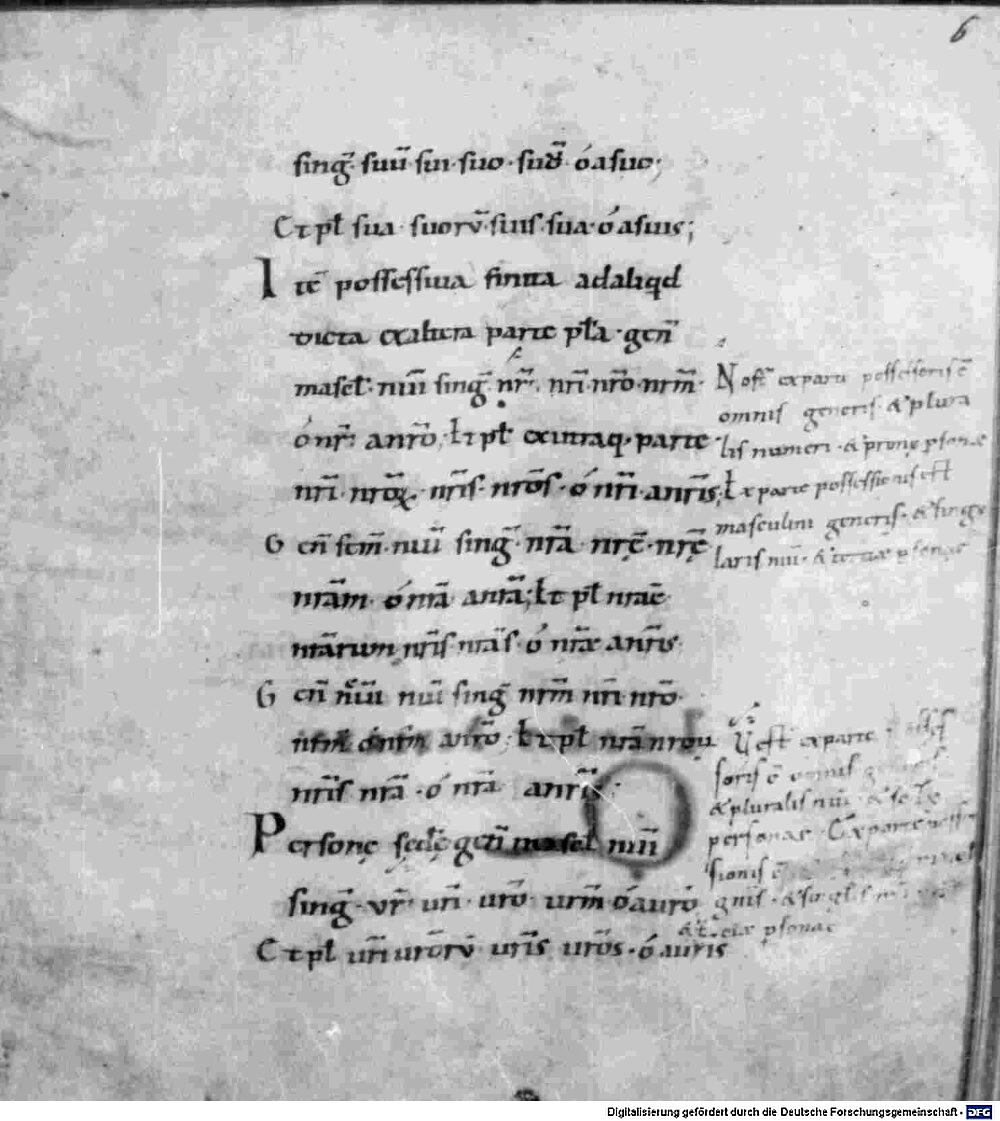 6
singˉ. suū sui suo. suū ó a suo;
Et pł sua. suorū. suis. sua. ó a suis;
Itē possessiua finita ad aliqd
dicta ex altera parte pła. gen̄
mascł. nui singˉ. nr̄. nrī. nrō. nrm̄.
ó nr̄. a nrō. Et pł ex utraq; parte
nrī. nroꝝ. nrīs. nrōs. ó nrī. a nrīs;
Gen̄ fem̄. nuī singˉ. nrā. nrę̄. nrę̄
nrām. ó nrā a nrā; Et pł nrae.
nrārum. nrīs nrās. ó nrae a nrīs.
Gen̄ nuī singˉ nrm̄ nrī. nrō.
a nrō. Et pł nrā nroꝝ
nrīs nrā. ó nrā a nrīs:
Personę scd̄ę gen̄ mascł nuī
singˉ. vr̄. urī. urō. urm̄ ó a urō
Et pł urī urōrū urīs urōs. ó a urīs
Nost̄ ex parte possessoris ē
omnis generis & plura
lis numeri. & prime psonae
Ex parte possessionis est
masculini generis. & singu
laris nuī. & psonae
est ex parte
soris ē omnis
& pluralis nuī. &
personae. Ex parte
sionis ē
gnis. & singł
& t̄ciae psonae
Digitalisierung gefördert durch die Deutsche Forschungsgemeinschaft - DFG